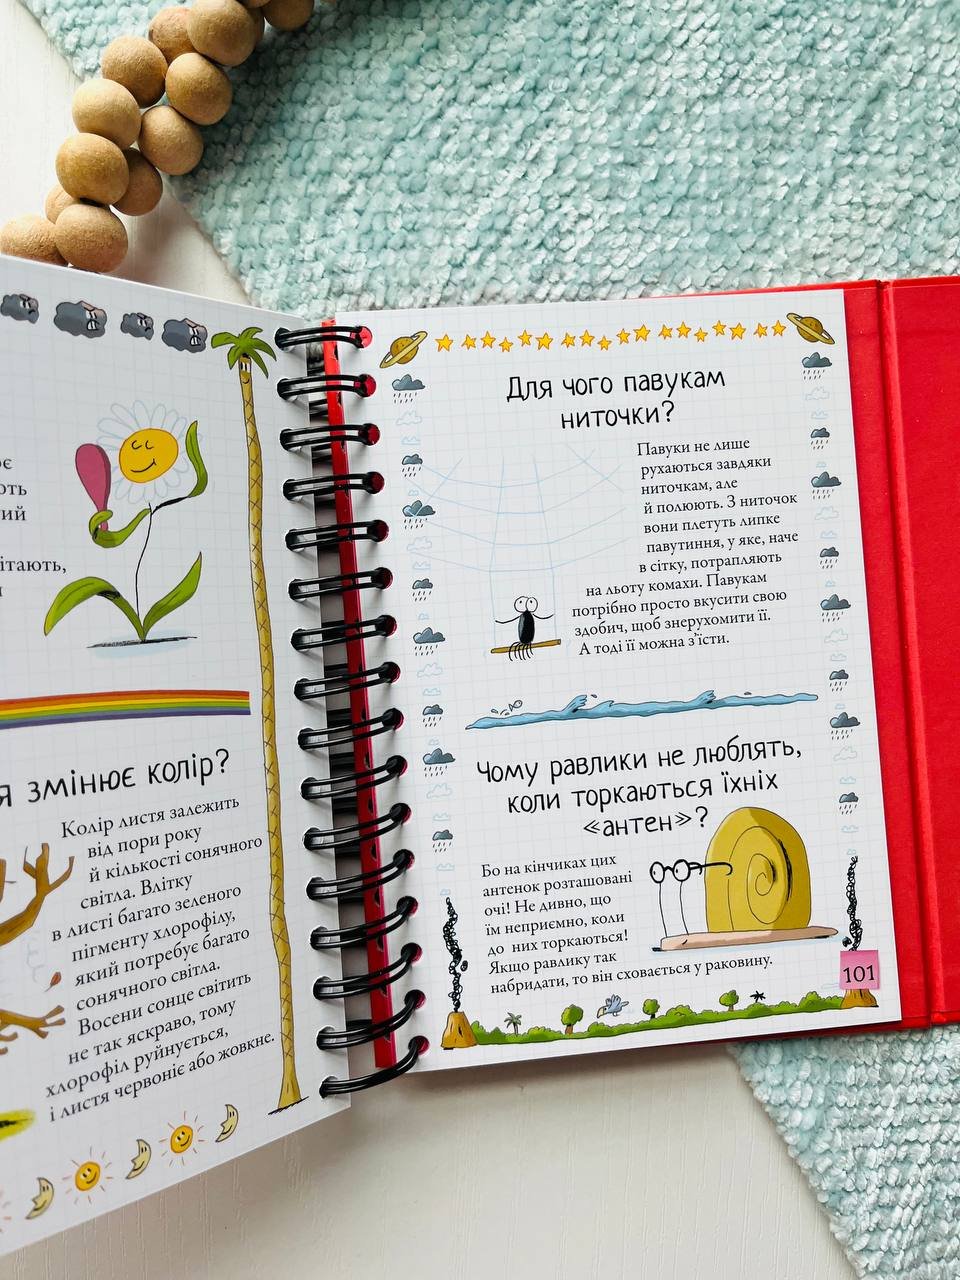 я змінює колір?
Колір листя залежить
від пори року
й кількості сонячного
світла. Влітку
в листі багато зеленого
пігменту хлорофілу,
який потребує багато
сонячного світла.
Восени сонце світить
не так яскраво, тому
хлорофіл руйнується,
і листя червоніє або жовкне.
Для чого павукам
ниточки?
Павуки не лише
рухаються завдяки
ниточкам, але
й полюють. З ниточок
вони плетуть липке
павутиння, у яке, наче
в сітку, потрапляють
на льоту комахи. Павукам
потрібно просто вкусити свою
здобич, щоб знерухомити її.
А тоді її можна з'їсти.
Чому равлики не люблять,
коли торкаються їхніх
«антен»?
Бо на кінчиках цих
антенок розташовані
очі! Не дивно, що
їм неприємно, коли
до них торкаються!
Якщо равлику так
набридати, то він сховається у раковину.
101